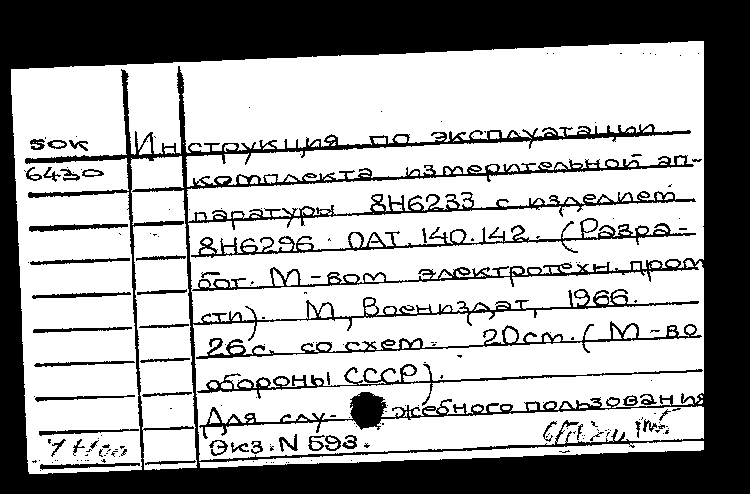 sok Инструкция по эксплуатации
6430 комплекта измерительной ап-
паратуры 8Н6233 с изделием
8Н6296 ОАТ.140.142. (Разра-
бот. М-вом электротехн. пром
сти). М, Воениздат, 1966.
26с. со схем. 20см. (М-во
обороны СССР).
Для слу- жебного пользования
Экз. N 593.